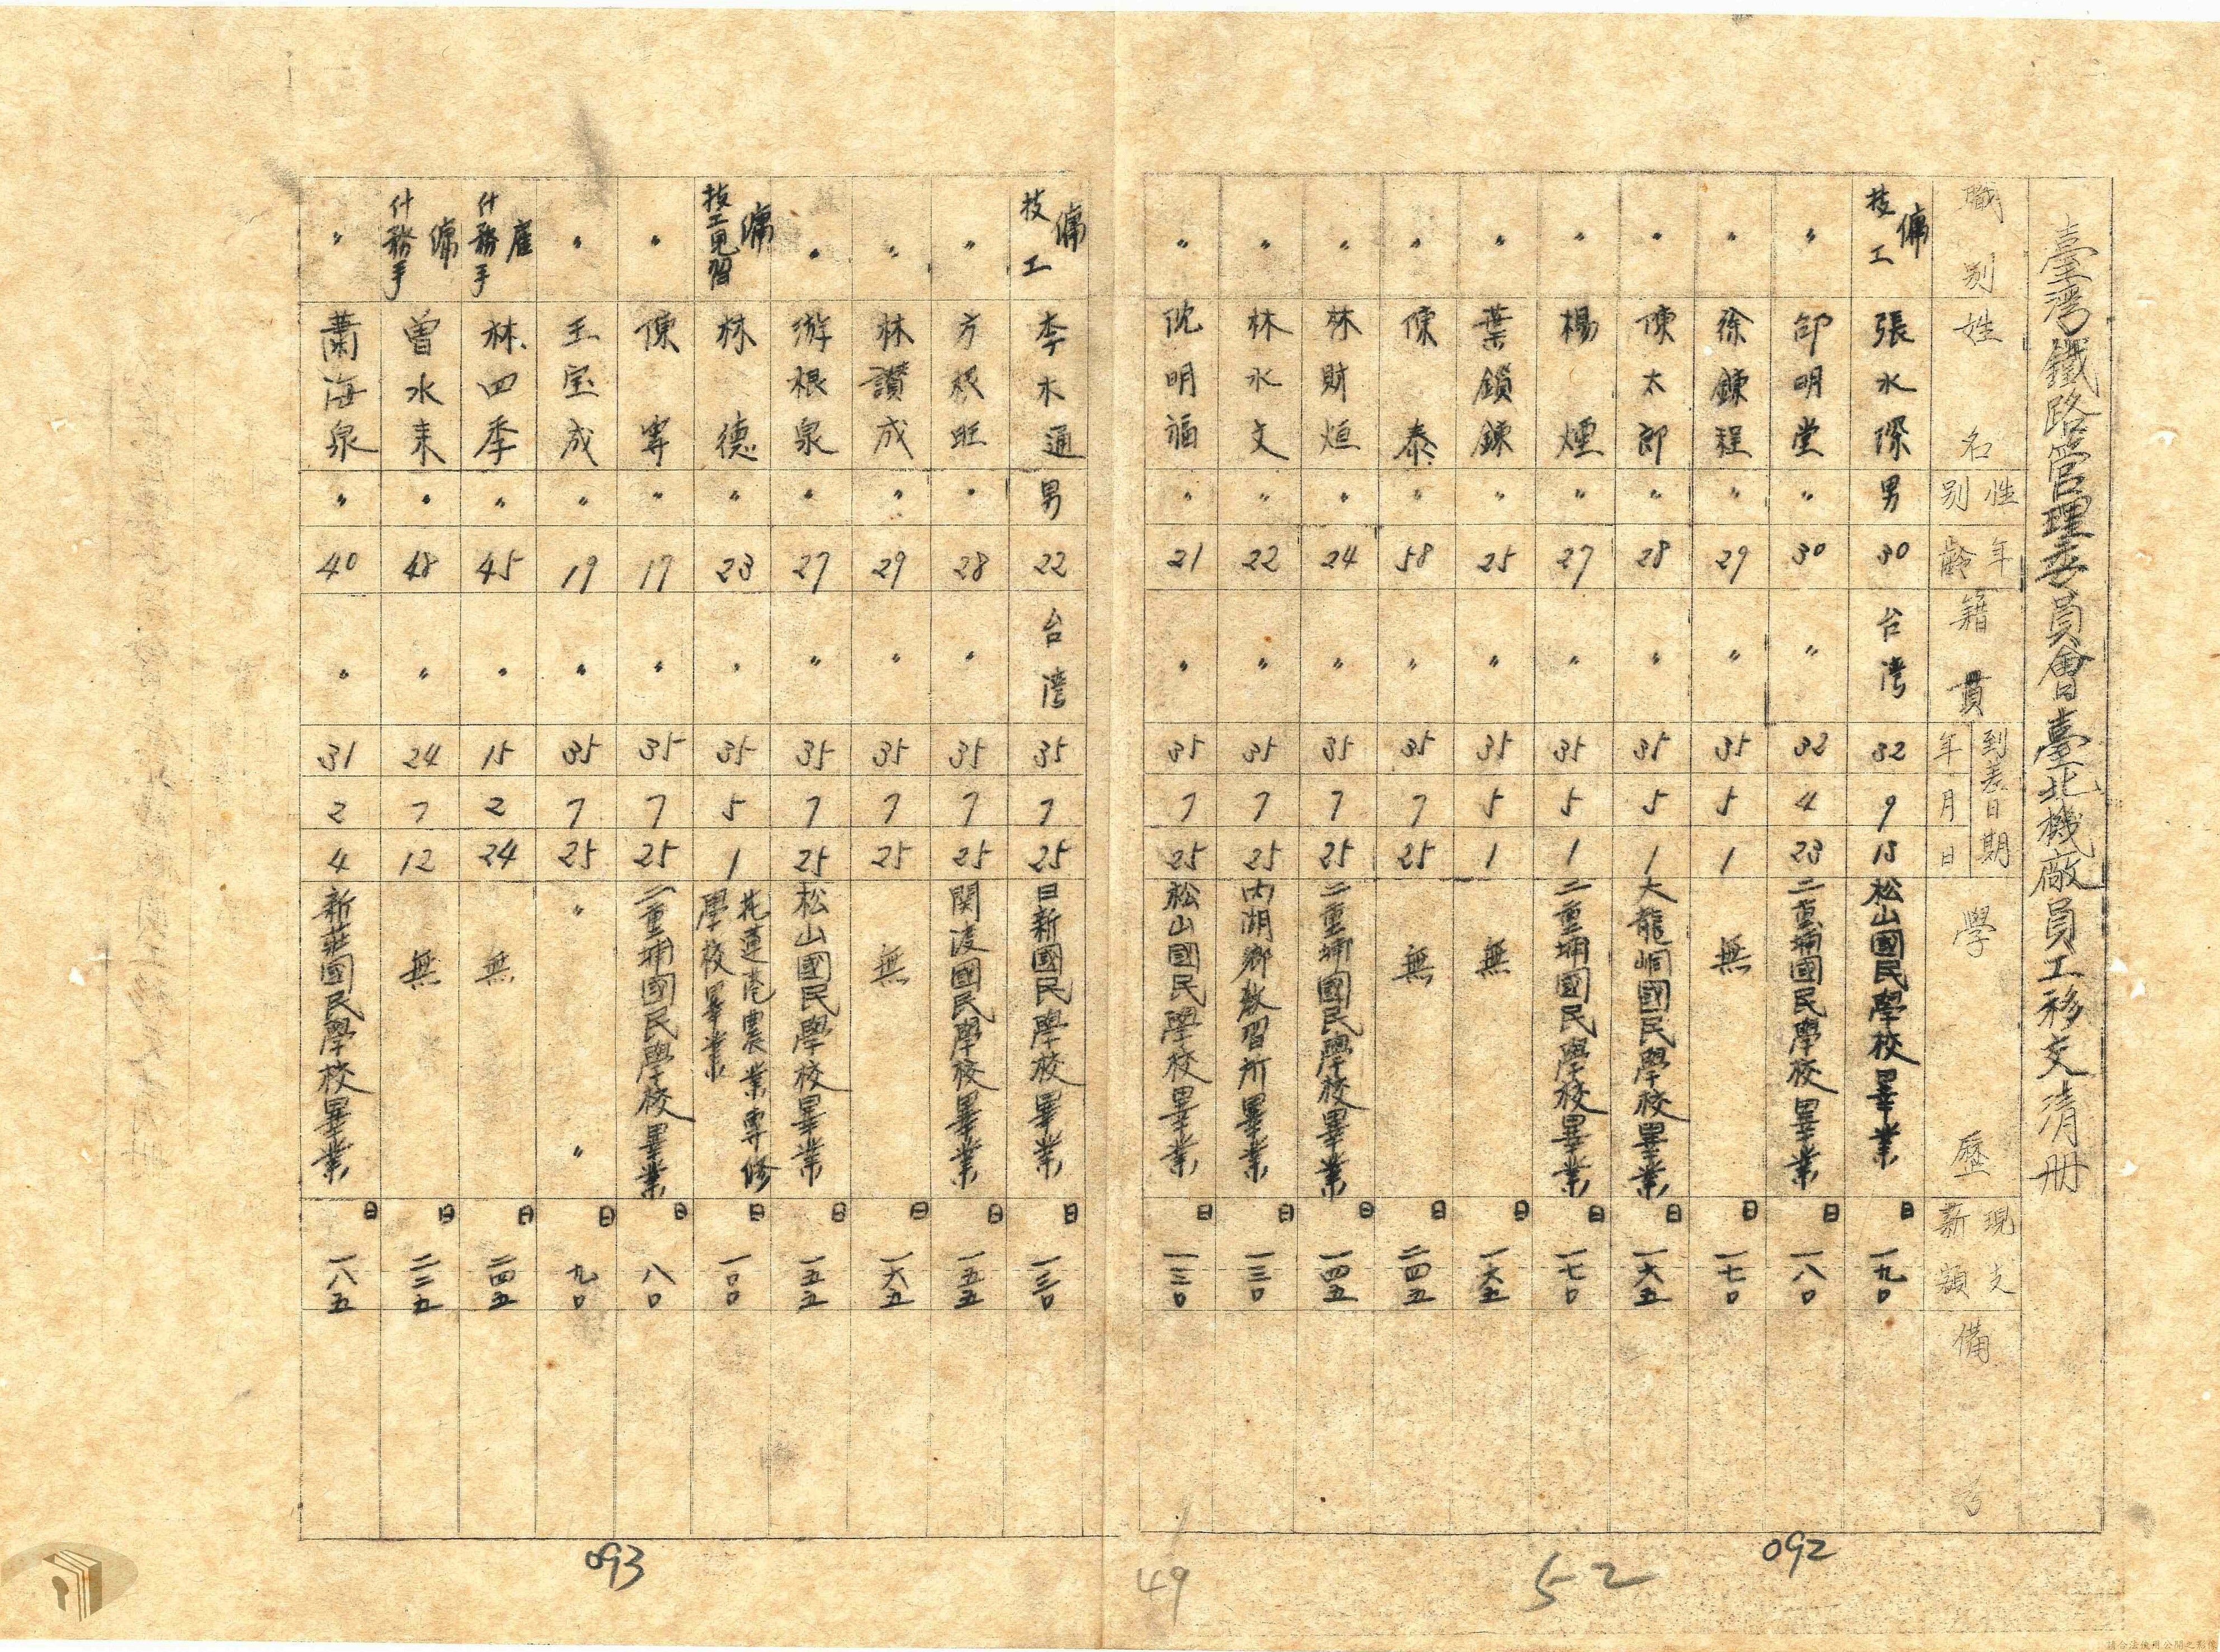 臺灣鐵路管理委員會臺北機廠員工移交清冊
職別 姓名 性別 年齡 籍貫 到差日期 年 月 日 學歷 現支薪額 備考
傭技工 張水琛 男 30 台灣 32 9 15 松山國民學校畢業 日 一九〇
〃 邱明堂 〃 30 〃 32 4 23 二重埔國民學校畢業 日 一八〇
〃 徐鍊程 〃 29 〃 35 5 1 無 日 一七〇
〃 陳太郎 〃 28 〃 35 5 1 大龍峒國民學校畢業 日 一六五
〃 楊煙 〃 27 〃 35 5 1 二重埔國民學校畢業 日 一七〇
〃 葉鎖鍊 〃 25 〃 35 5 1 無 日 一六五
〃 陳泰 〃 58 〃 35 7 25 無 日 二四五
〃 林財烜 〃 24 〃 35 7 25 二重埔國民學校畢業 日 一四五
〃 林水文 〃 22 〃 35 7 25 內湖鄉教習所畢業 日 一三〇
〃 沈明福 〃 21 〃 35 7 25 松山國民學校畢業 日 一三〇
092
52
49
傭技工 李木通 男 22 台灣 35 7 25 日新國民學校畢業 日 一三〇
〃 方根旺 〃 28 〃 35 7 25 関渡國民學校畢業 日 一五五
〃 林讚成 〃 29 〃 35 7 25 無 日 一六五
〃 游根泉 〃 27 〃 35 7 25 松山國民學校畢業 日 一五五
傭技工見習 林德 〃 23 〃 35 5 1 花蓮港農業專修學校畢業 日 一〇〇
〃 陳寧 〃 17 〃 35 7 25 二重埔國民學校畢業 日 八〇
〃 王宝成 〃 19 〃 35 7 25 〃 〃 日 九〇
雇什務手 林四季 〃 45 〃 15 2 24 無 日 二四五
傭什務手 曾水來 〃 48 〃 24 7 12 無 日 二二五
〃 蕭海泉 〃 40 〃 31 2 4 新莊國民學校畢業 日 一八五
093